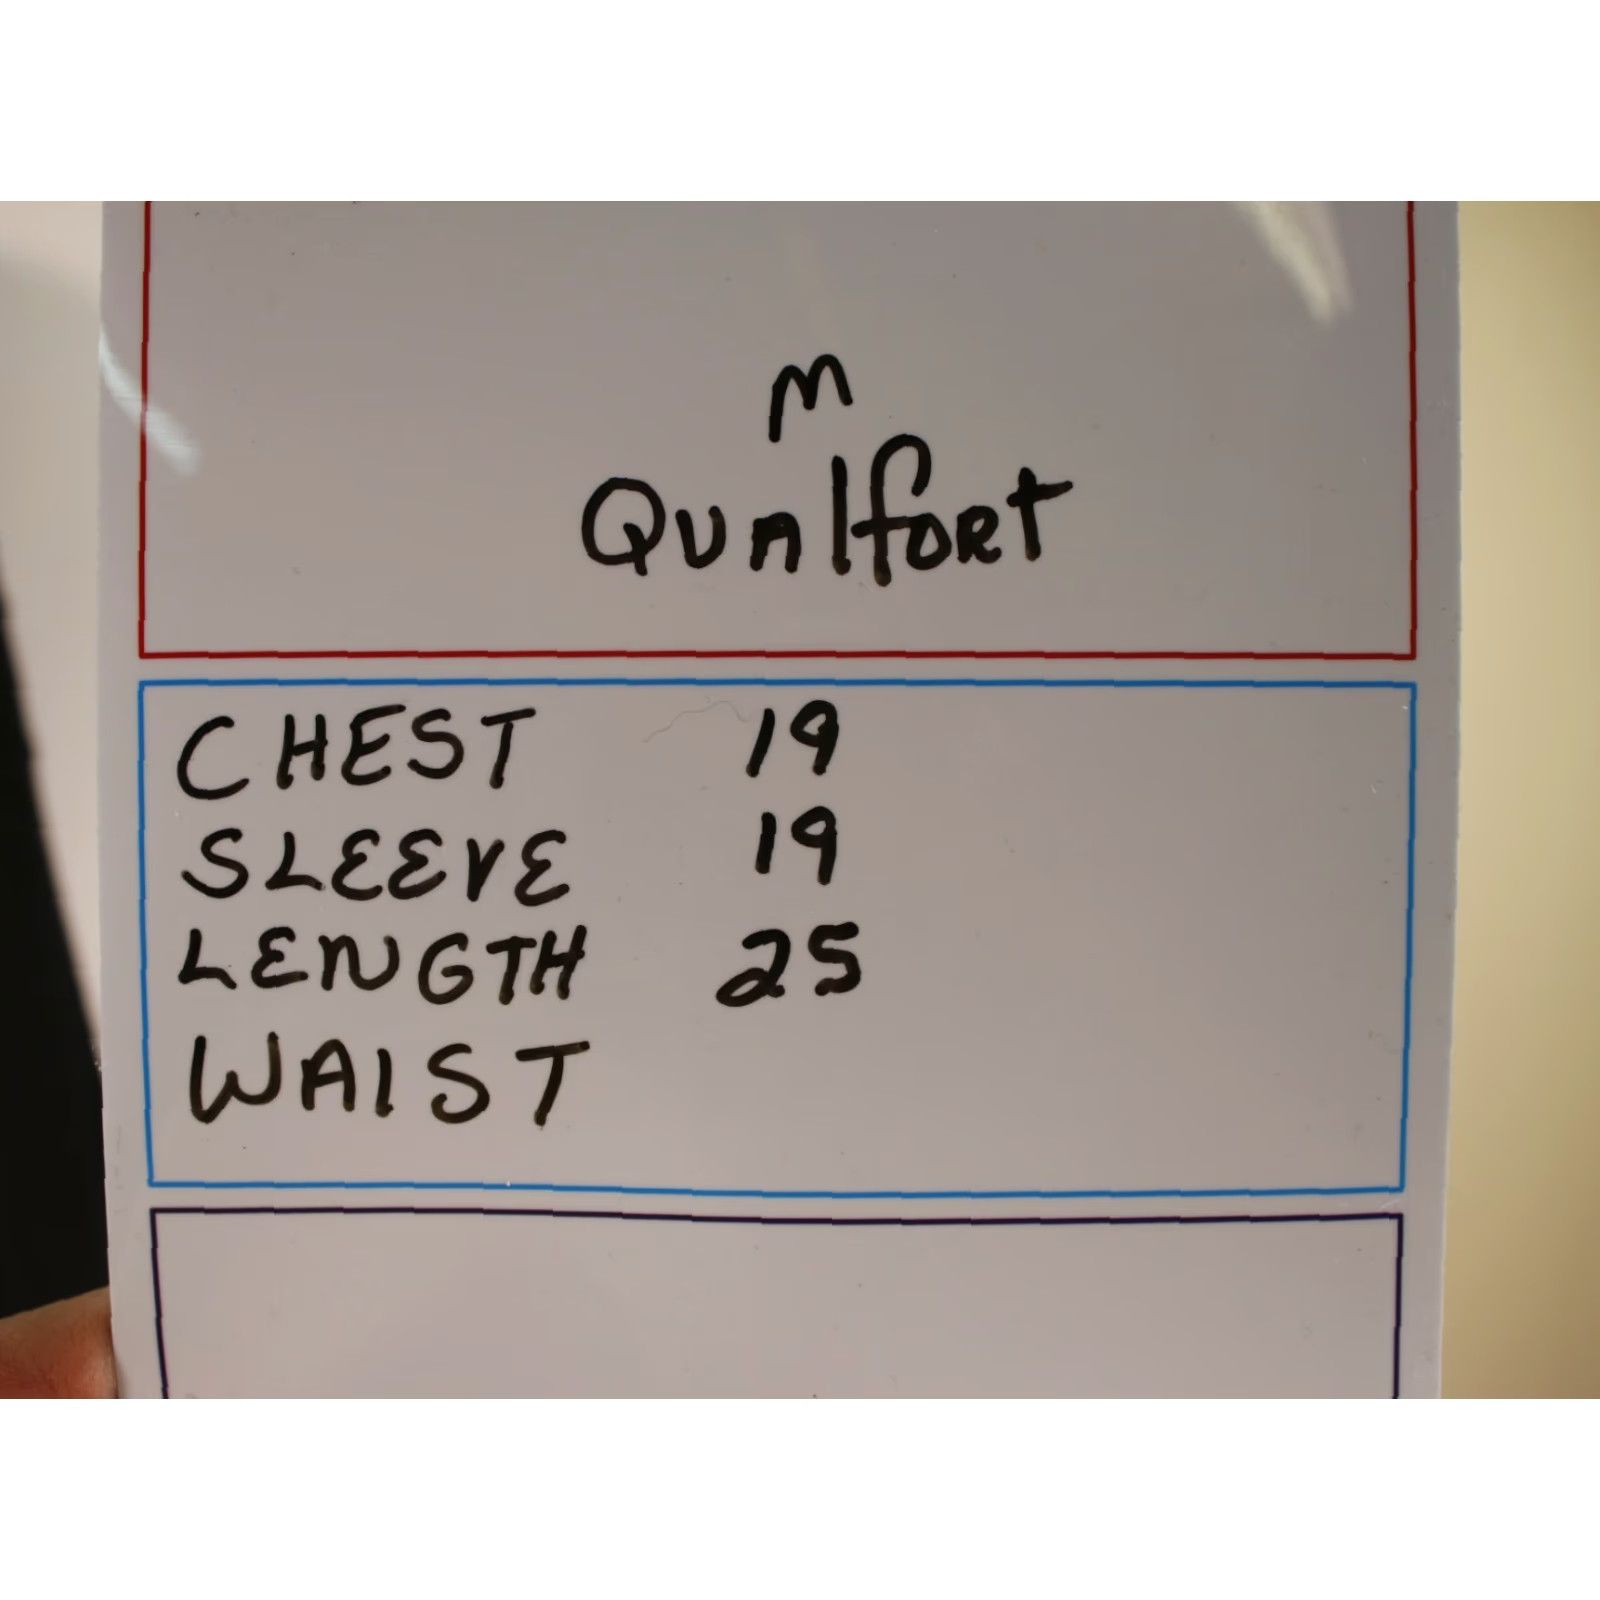 M
Qualfort
CHEST 19
SLEEVE 19
LENGTH 25
WAIST